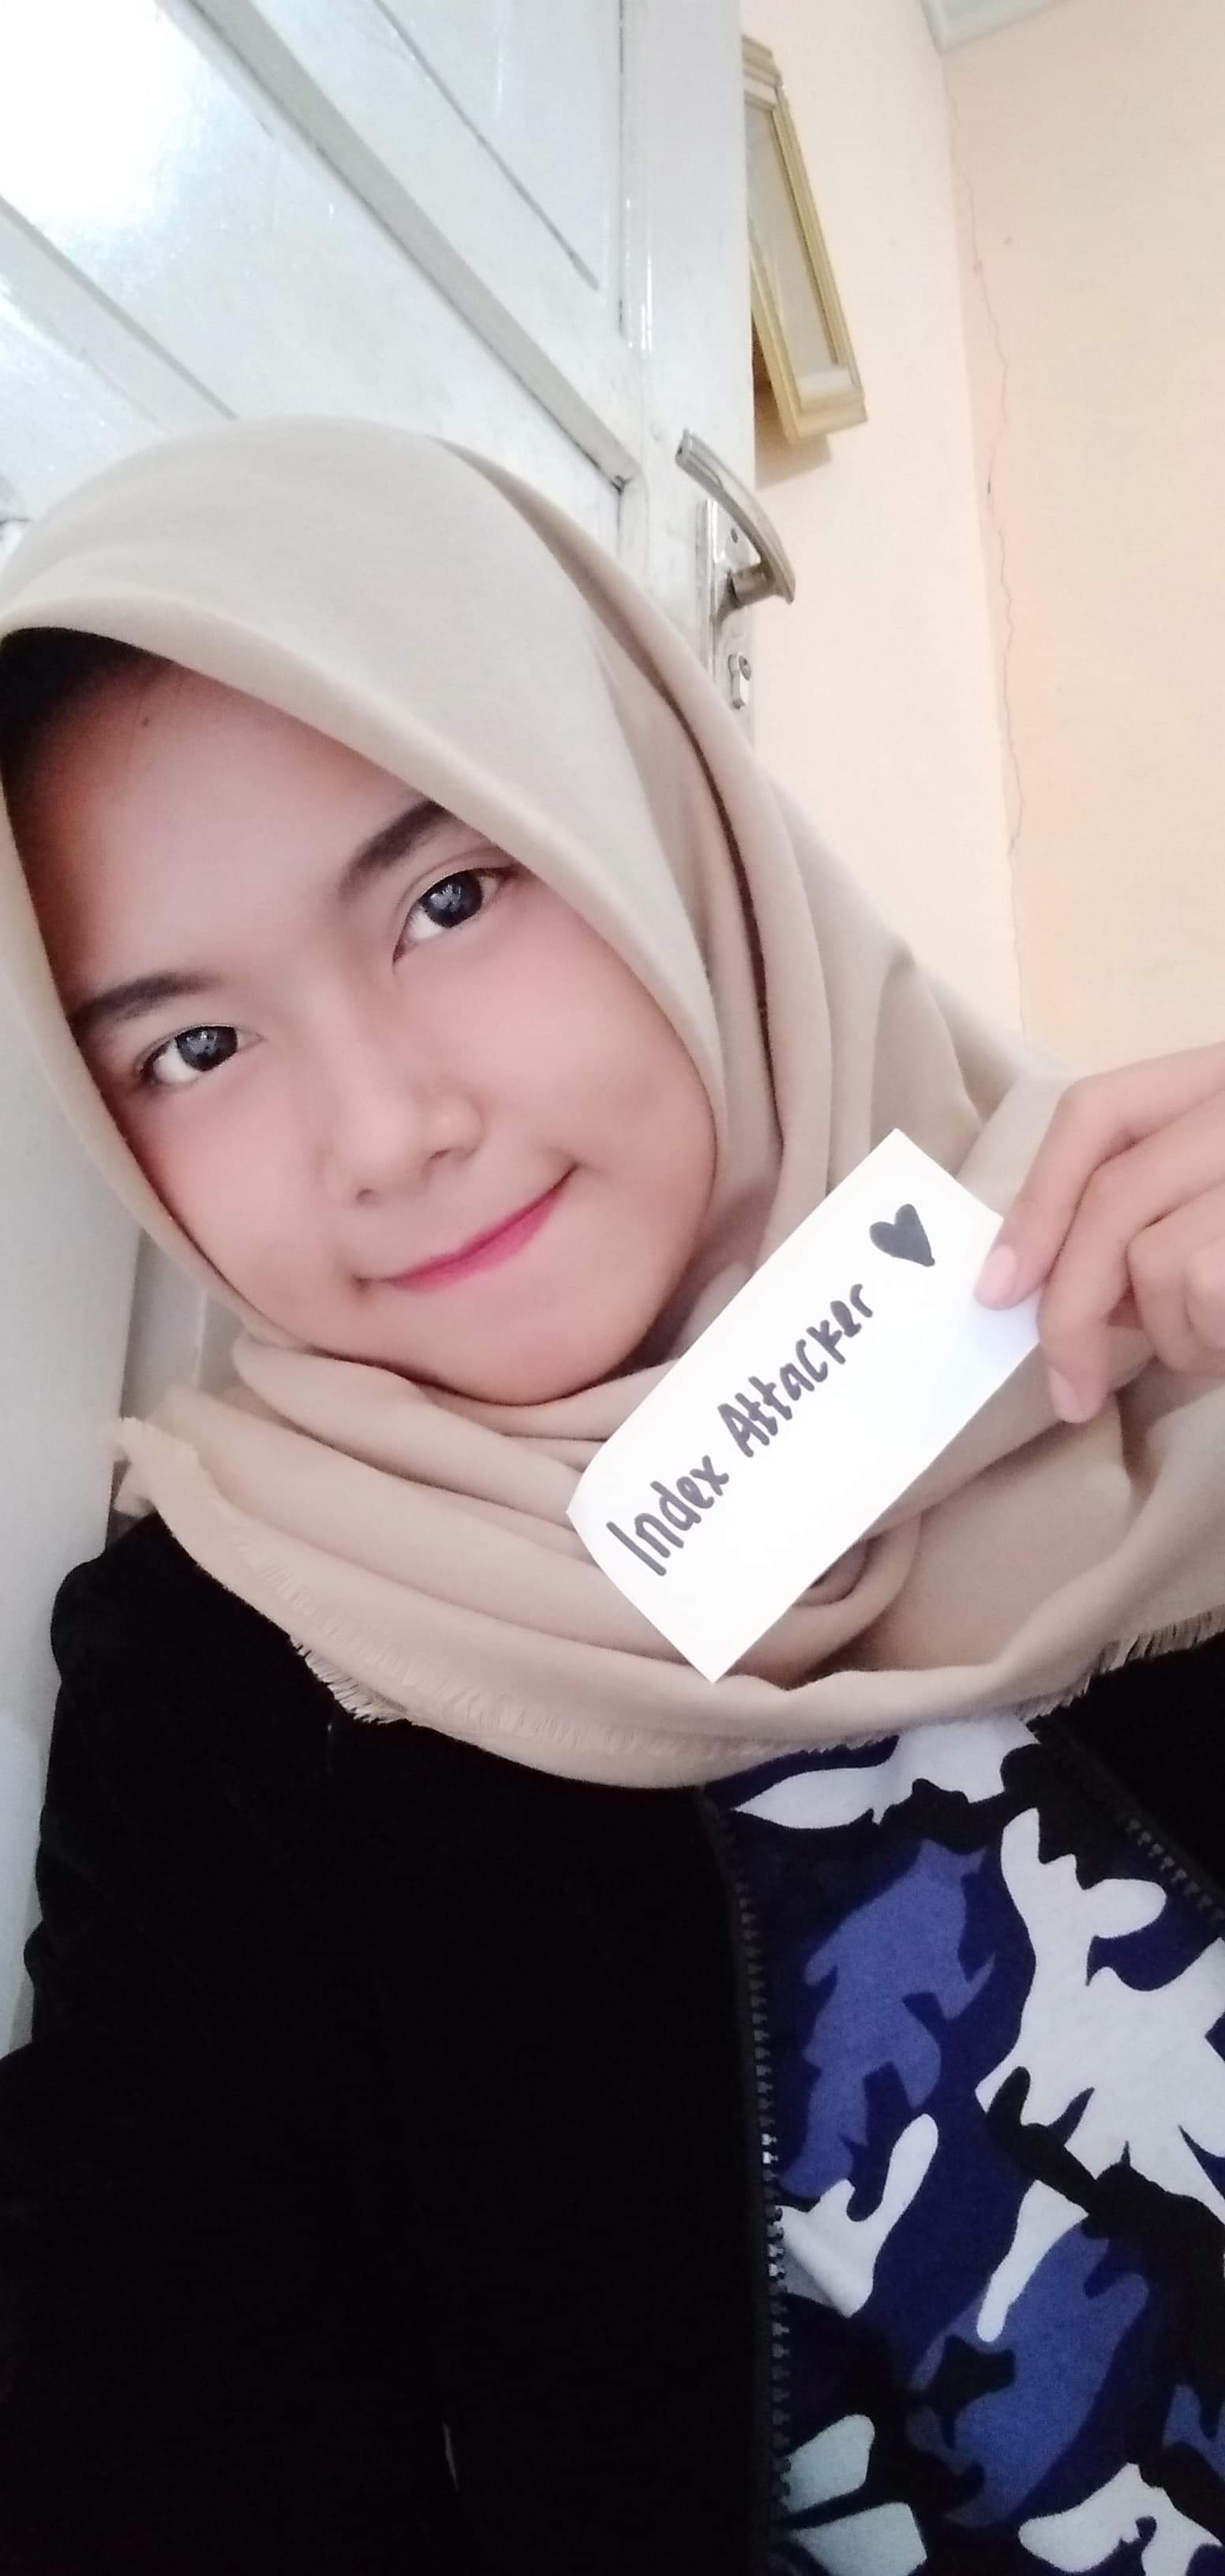 Index Attacker ♥